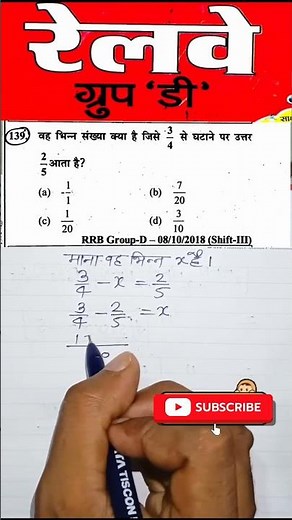 रेलवे
ग्रुप 'डी'
139. वह भिन्न संख्या क्या है जिसे 3/4 से घटाने पर उत्तर
2/5 आता है?
(a) 1/1 (b) 7/20
(c) 1/20 (d) 3/10
RRB Group-D – 08/10/2018 (Shift-III)
माना वह भिन्न x है।
3/4 - x = 2/5
3/4 - 2/5 = x
SUBSCRIBE
TATA TISCON